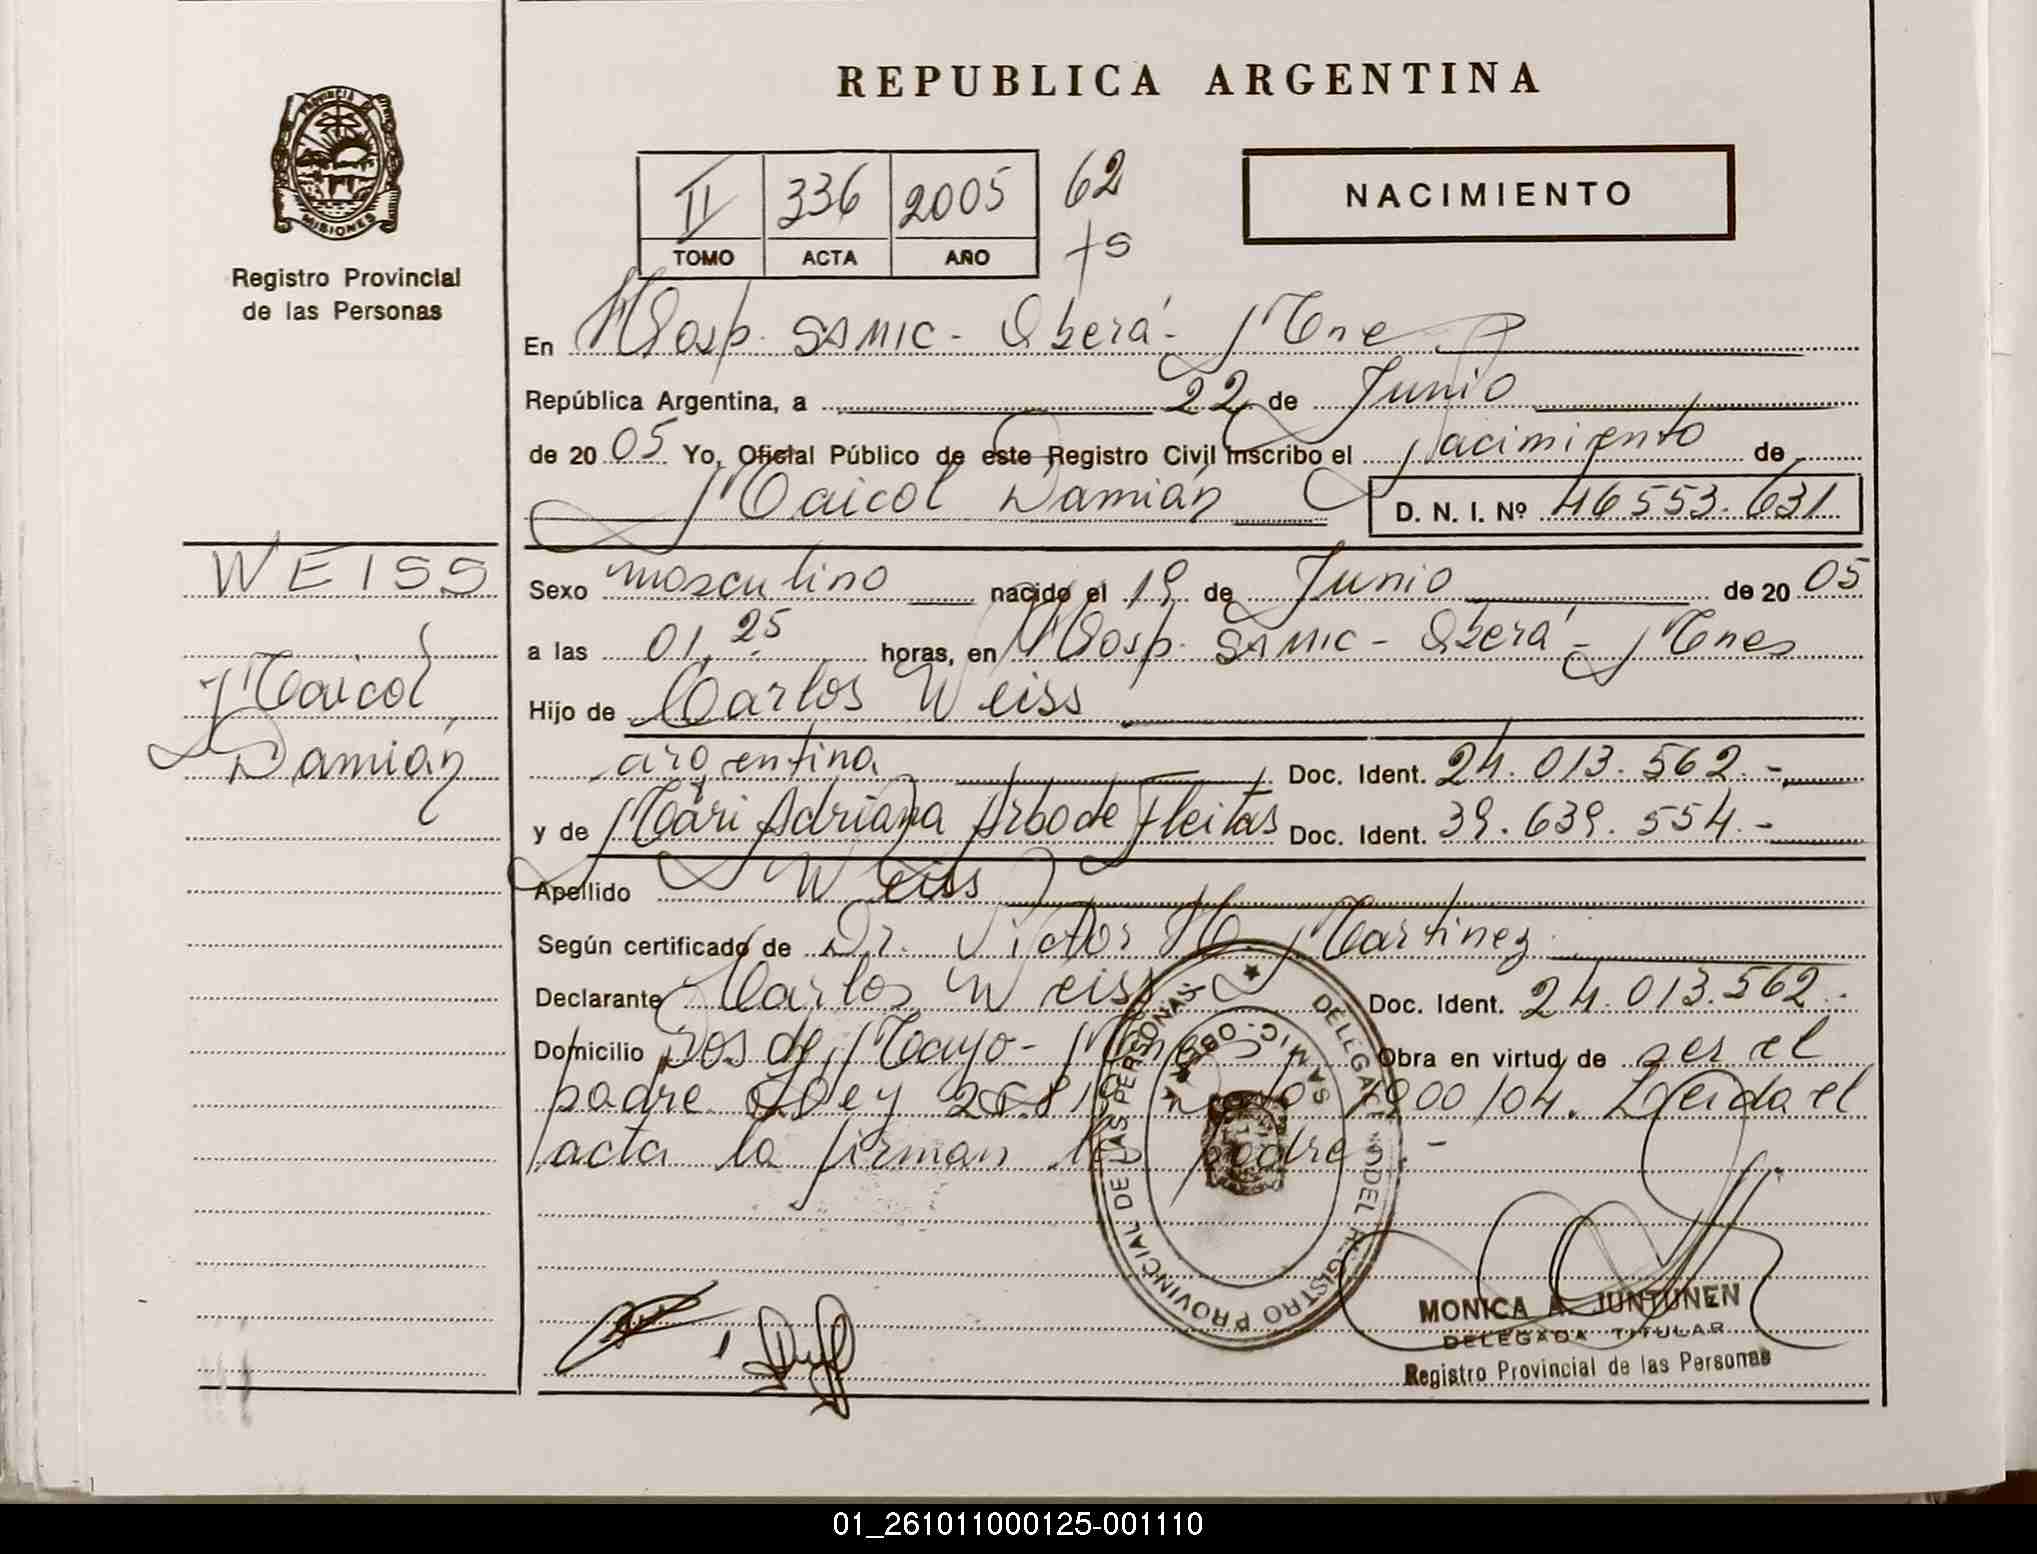 REPUBLICA ARGENTINA
PROVINCIA DE
MISIONES
Registro Provincial
de las Personas
II 336 2005 62
TOMO ACTA AÑO fs
NACIMIENTO
En Hosp. SAMIC - Oberá - Mnes
República Argentina, a 22 de Junio
de 20 05 Yo, Oficial Público de este Registro Civil inscribo el nacimiento de
Maicol Damián D. N. I. Nº 46553.631
WEISS
Maicol
Damián
Sexo masculino nacido el 19 de Junio de 20 05
a las 01,25 horas, en Hosp. SAMIC - Oberá - Mnes
Hijo de Carlos Weiss
argentina Doc. Ident. 24.013.562.-
y de Mari Adriana Arbo de Fleitas Doc. Ident. 39.639.554.-
Apellido Weiss
Según certificado de Dr. Victor H. Martinez
Declarante Carlos Weiss Doc. Ident. 24.013.562.-
Domicilio Dos de Mayo - Mnes Obra en virtud de ser el
padre Ley 1900/04. Leida el
acta la firman los padres.-
DELEGACION DEL REGISTRO PROVINCIAL DE LAS PERSONAS
SAMIC - OBERA
MONICA A. JUNTUNEN
DELEGADA TITULAR
Registro Provincial de las Personas
01_261011000125-001110